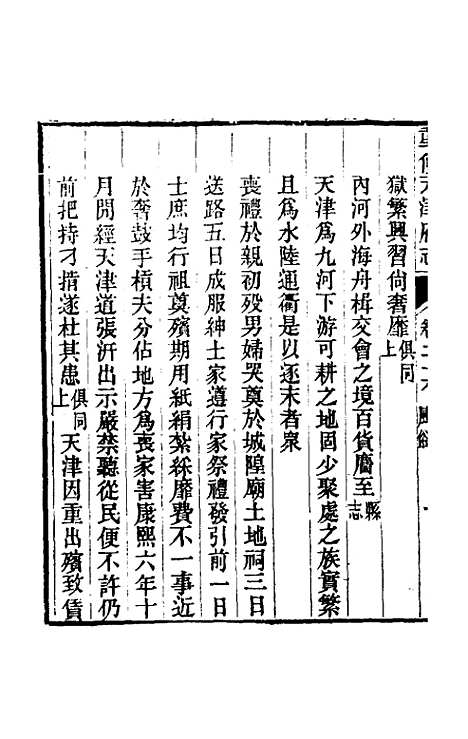 重修天津府志 卷二十六 風俗 一
獄繁興習尚奢靡俱同上
內河外海舟楫交會之境百貨麕至縣志
天津爲九河下游可耕之地固少聚處之族實繁
且爲水陸通衢是以逐末者衆
喪禮於親初歿男婦哭奠於城隍廟土地祠三日
送路五日成服紳士家遵行家祭禮發引前一日
士庶均行祖奠殯期用紙絹紮綵靡費不一事近
於奢鼓手槓夫分佔地方爲喪家害康熙六年十
月間經天津道張汧出示嚴禁聽從民便不許仍
前把持刁措遂杜其患俱同上天津因重出殯致賃